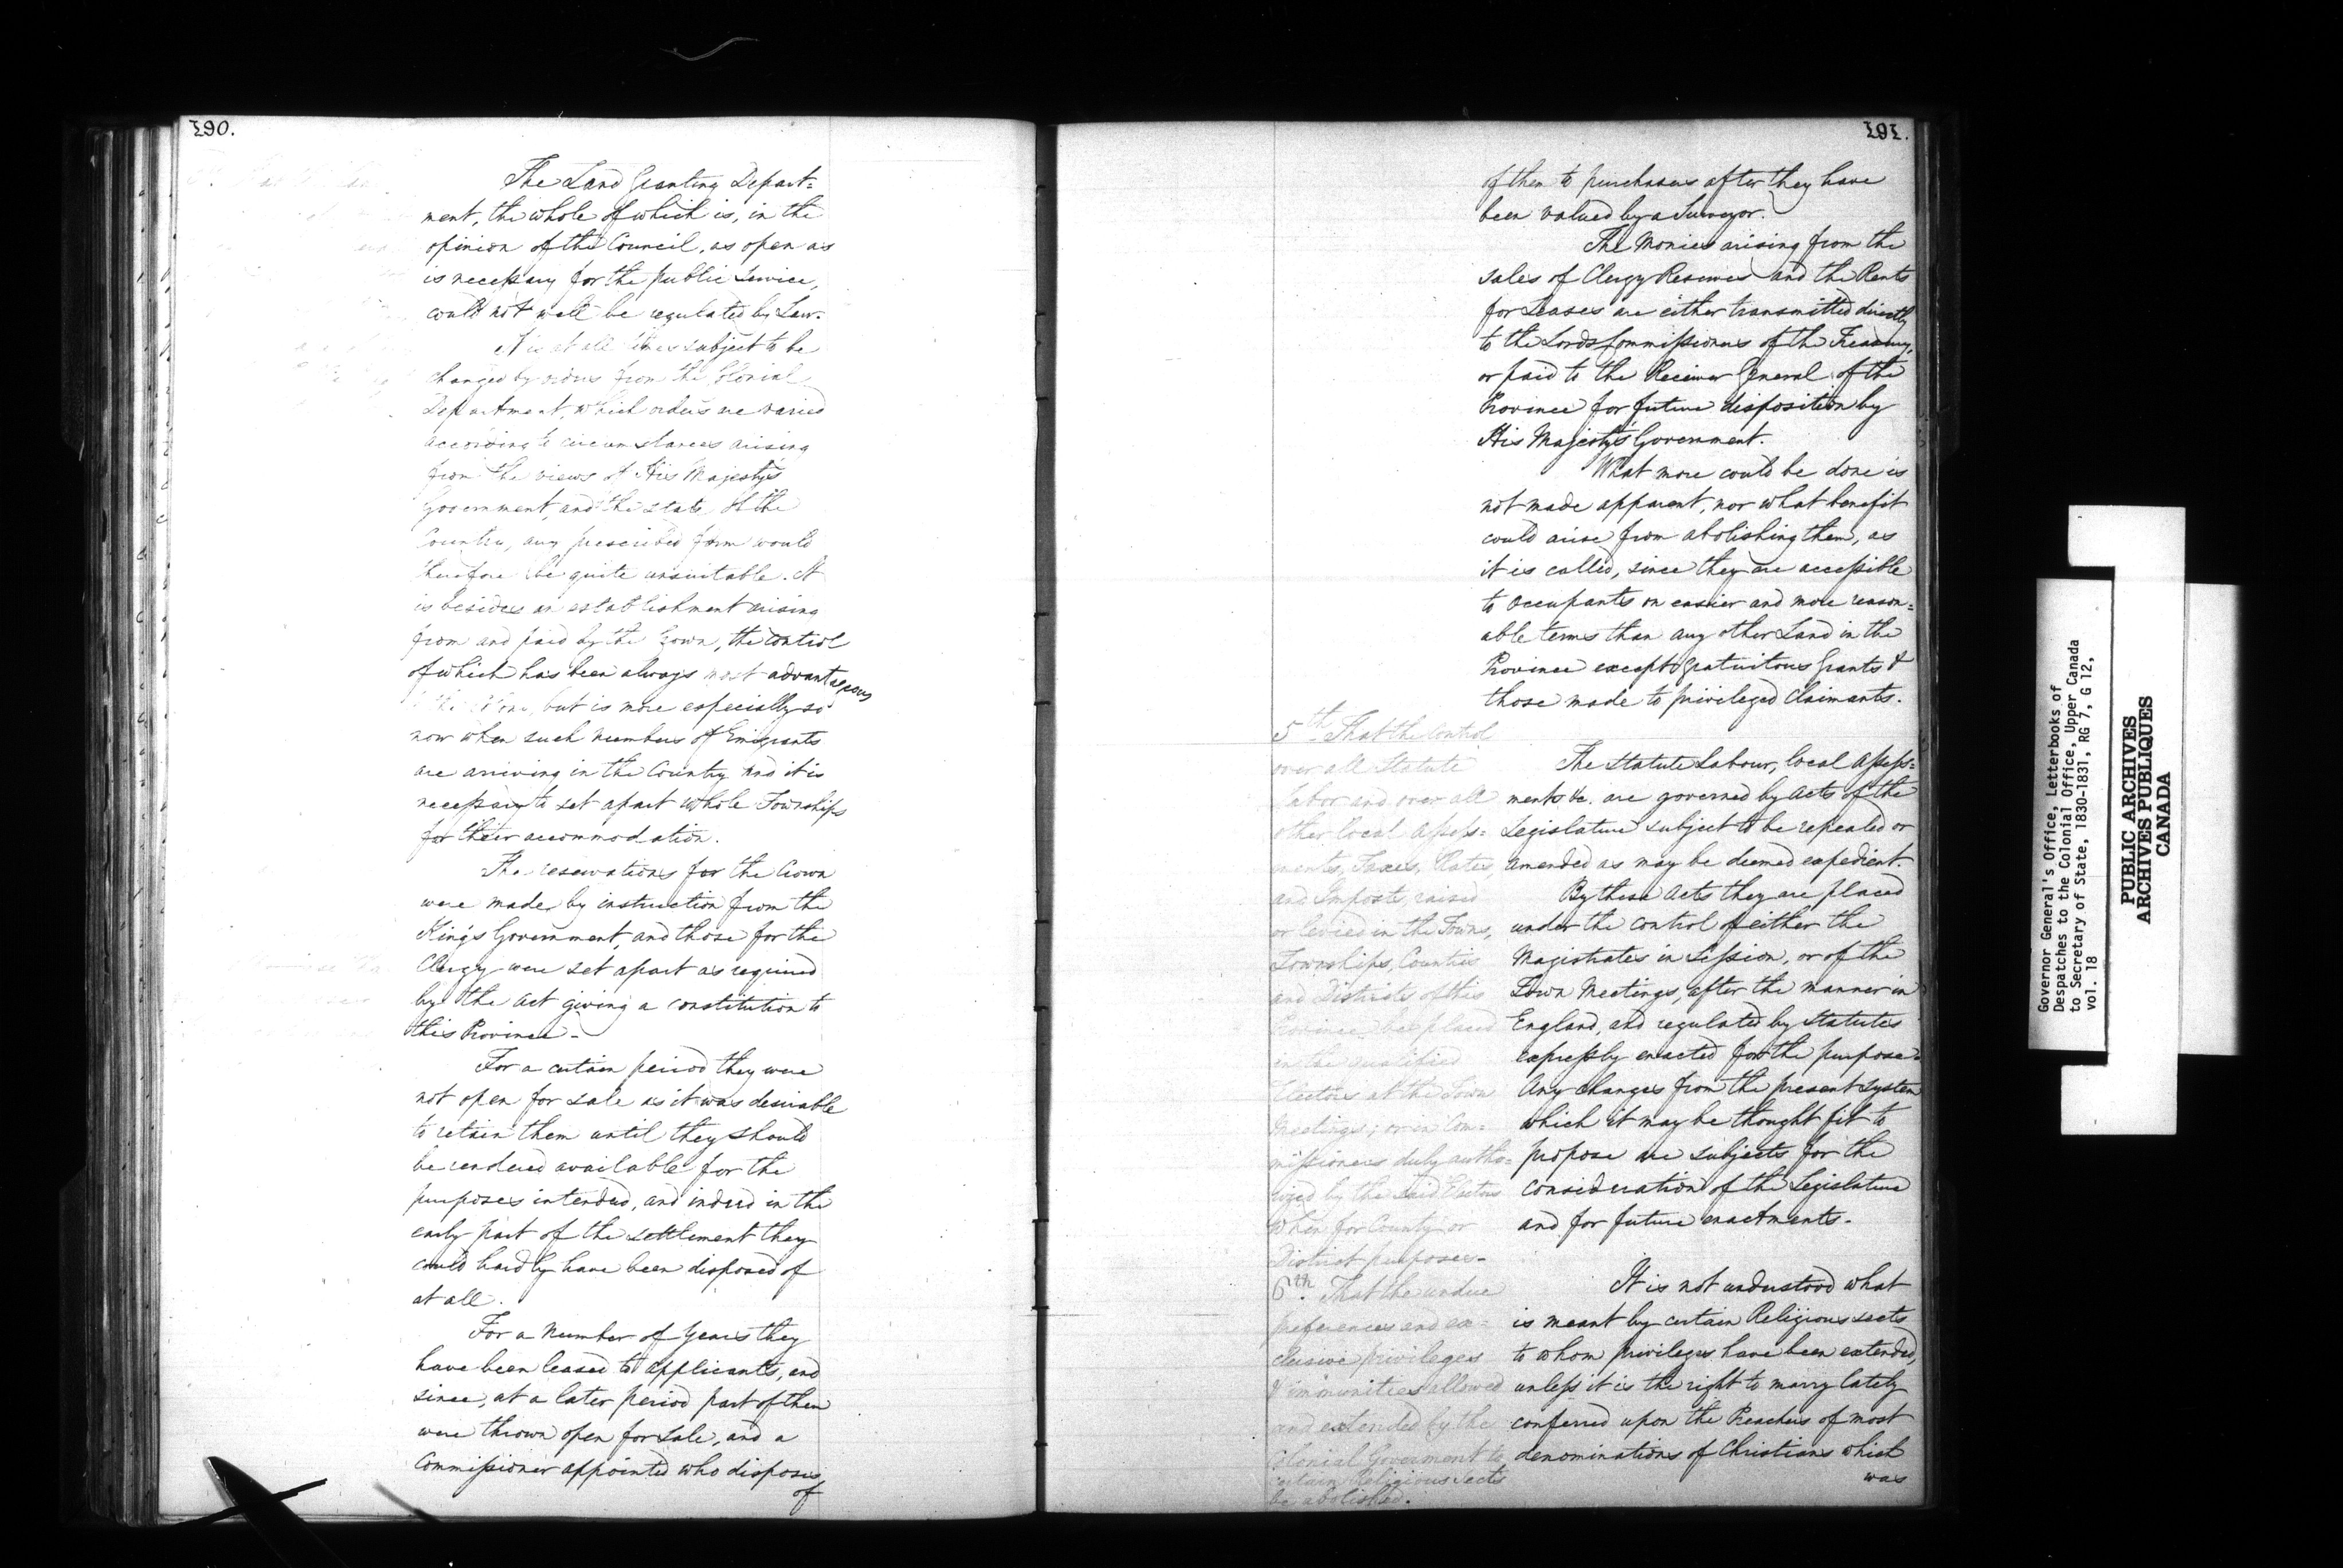 190.
The Land Granting Depart=
ment, the whole of which is, in the
opinion of the Council, as open as
is necessary for the public Service,
could not well be regulated by Law.
It is at all times subject to be
changed by orders from the Colonial
Department, which orders are varied
according to circumstances arising
from the views of His Majesty's
Government, and the state of the
Country, any prescribed form would
therefore be quite unsuitable. It
is besides an establishment arising
from and paid by the Crown, the control
of which has been always most advantageous
but is more especially so
now when such numbers of Emigrants
are arriving in the Country and it is
necessary to set apart whole Townships
for their accommodation.
The reservations for the Crown
were made by instruction from the
King's Government, and those for the
Clergy were set apart as required
by the Act giving a constitution to
this Province -
For a certain period they were
not open for sale as it was desirable
to retain them until they should
be rendered available for the
purposes intended, and indeed in the
early part of the settlement they
could hardly have been disposed of
at all.
For a number of Years they
have been leased to applicants, and
since, at a later period part of them
were thrown open for Sale, and a
Commissioner appointed who disposes
of
191.
of them to purchasers after they have
been valued by a Surveyor.
The Monies arising from the
sales of Clergy Reserves and the Rents
for Leases are either transmitted directly
to the Lords Commissioners of the Treasury,
or paid to the Receiver General of the
Province for future disposition by
His Majesty's Government.
What more could be done is
not made apparent, nor what benefit
could arise from abolishing them, as
it is called, since they are accessible
to occupants on easier and more reason=
able terms than any other Land in the
Province except Gratuitous Grants &
those made to privileged Claimants.
5th That the Control
over all Statute
Labor and over all
other local Assess=
ments, Taxes, Rates,
and Imposts, raised
or levied in the Towns,
Townships, Counties
and Districts of this
Province be placed
in the qualified
Electors at the Town
Meetings; or in Com=
missioners duly autho=
rized by the said Electors
when for County or
District purposes -
The Statute Labour, local Assess=
ments &c. are governed by Acts of the
Legislature subject to be repealed or
amended as may be deemed expedient.
By these Acts they are placed
under the control of either the
Magistrates in Session, or of the
Town Meetings, after the manner in
England, and regulated by Statutes
expressly enacted for the purpose.
Any changes from the present system
which it may be thought fit to
propose are subjects for the
consideration of the Legislature
and for future enactments.
6th. That the undue
preferences and ex=
clusive privileges
& immunities allowed
and extended by the
Colonial Goverment to
certain Religious Sects
be abolished.
It is not understood what
is meant by certain Religious sects
to whom privileges have been extended,
unless it is the right to marry lately
conferred upon the Preachers of most
denominations of Christians which
was
Governor General's Office, Letterbooks of
Despatches to the Colonial Office, Upper Canada
to Secretary of State, 1830-1831, RG 7, G 12,
vol. 18
PUBLIC ARCHIVES
ARCHIVES PUBLIQUES
CANADA